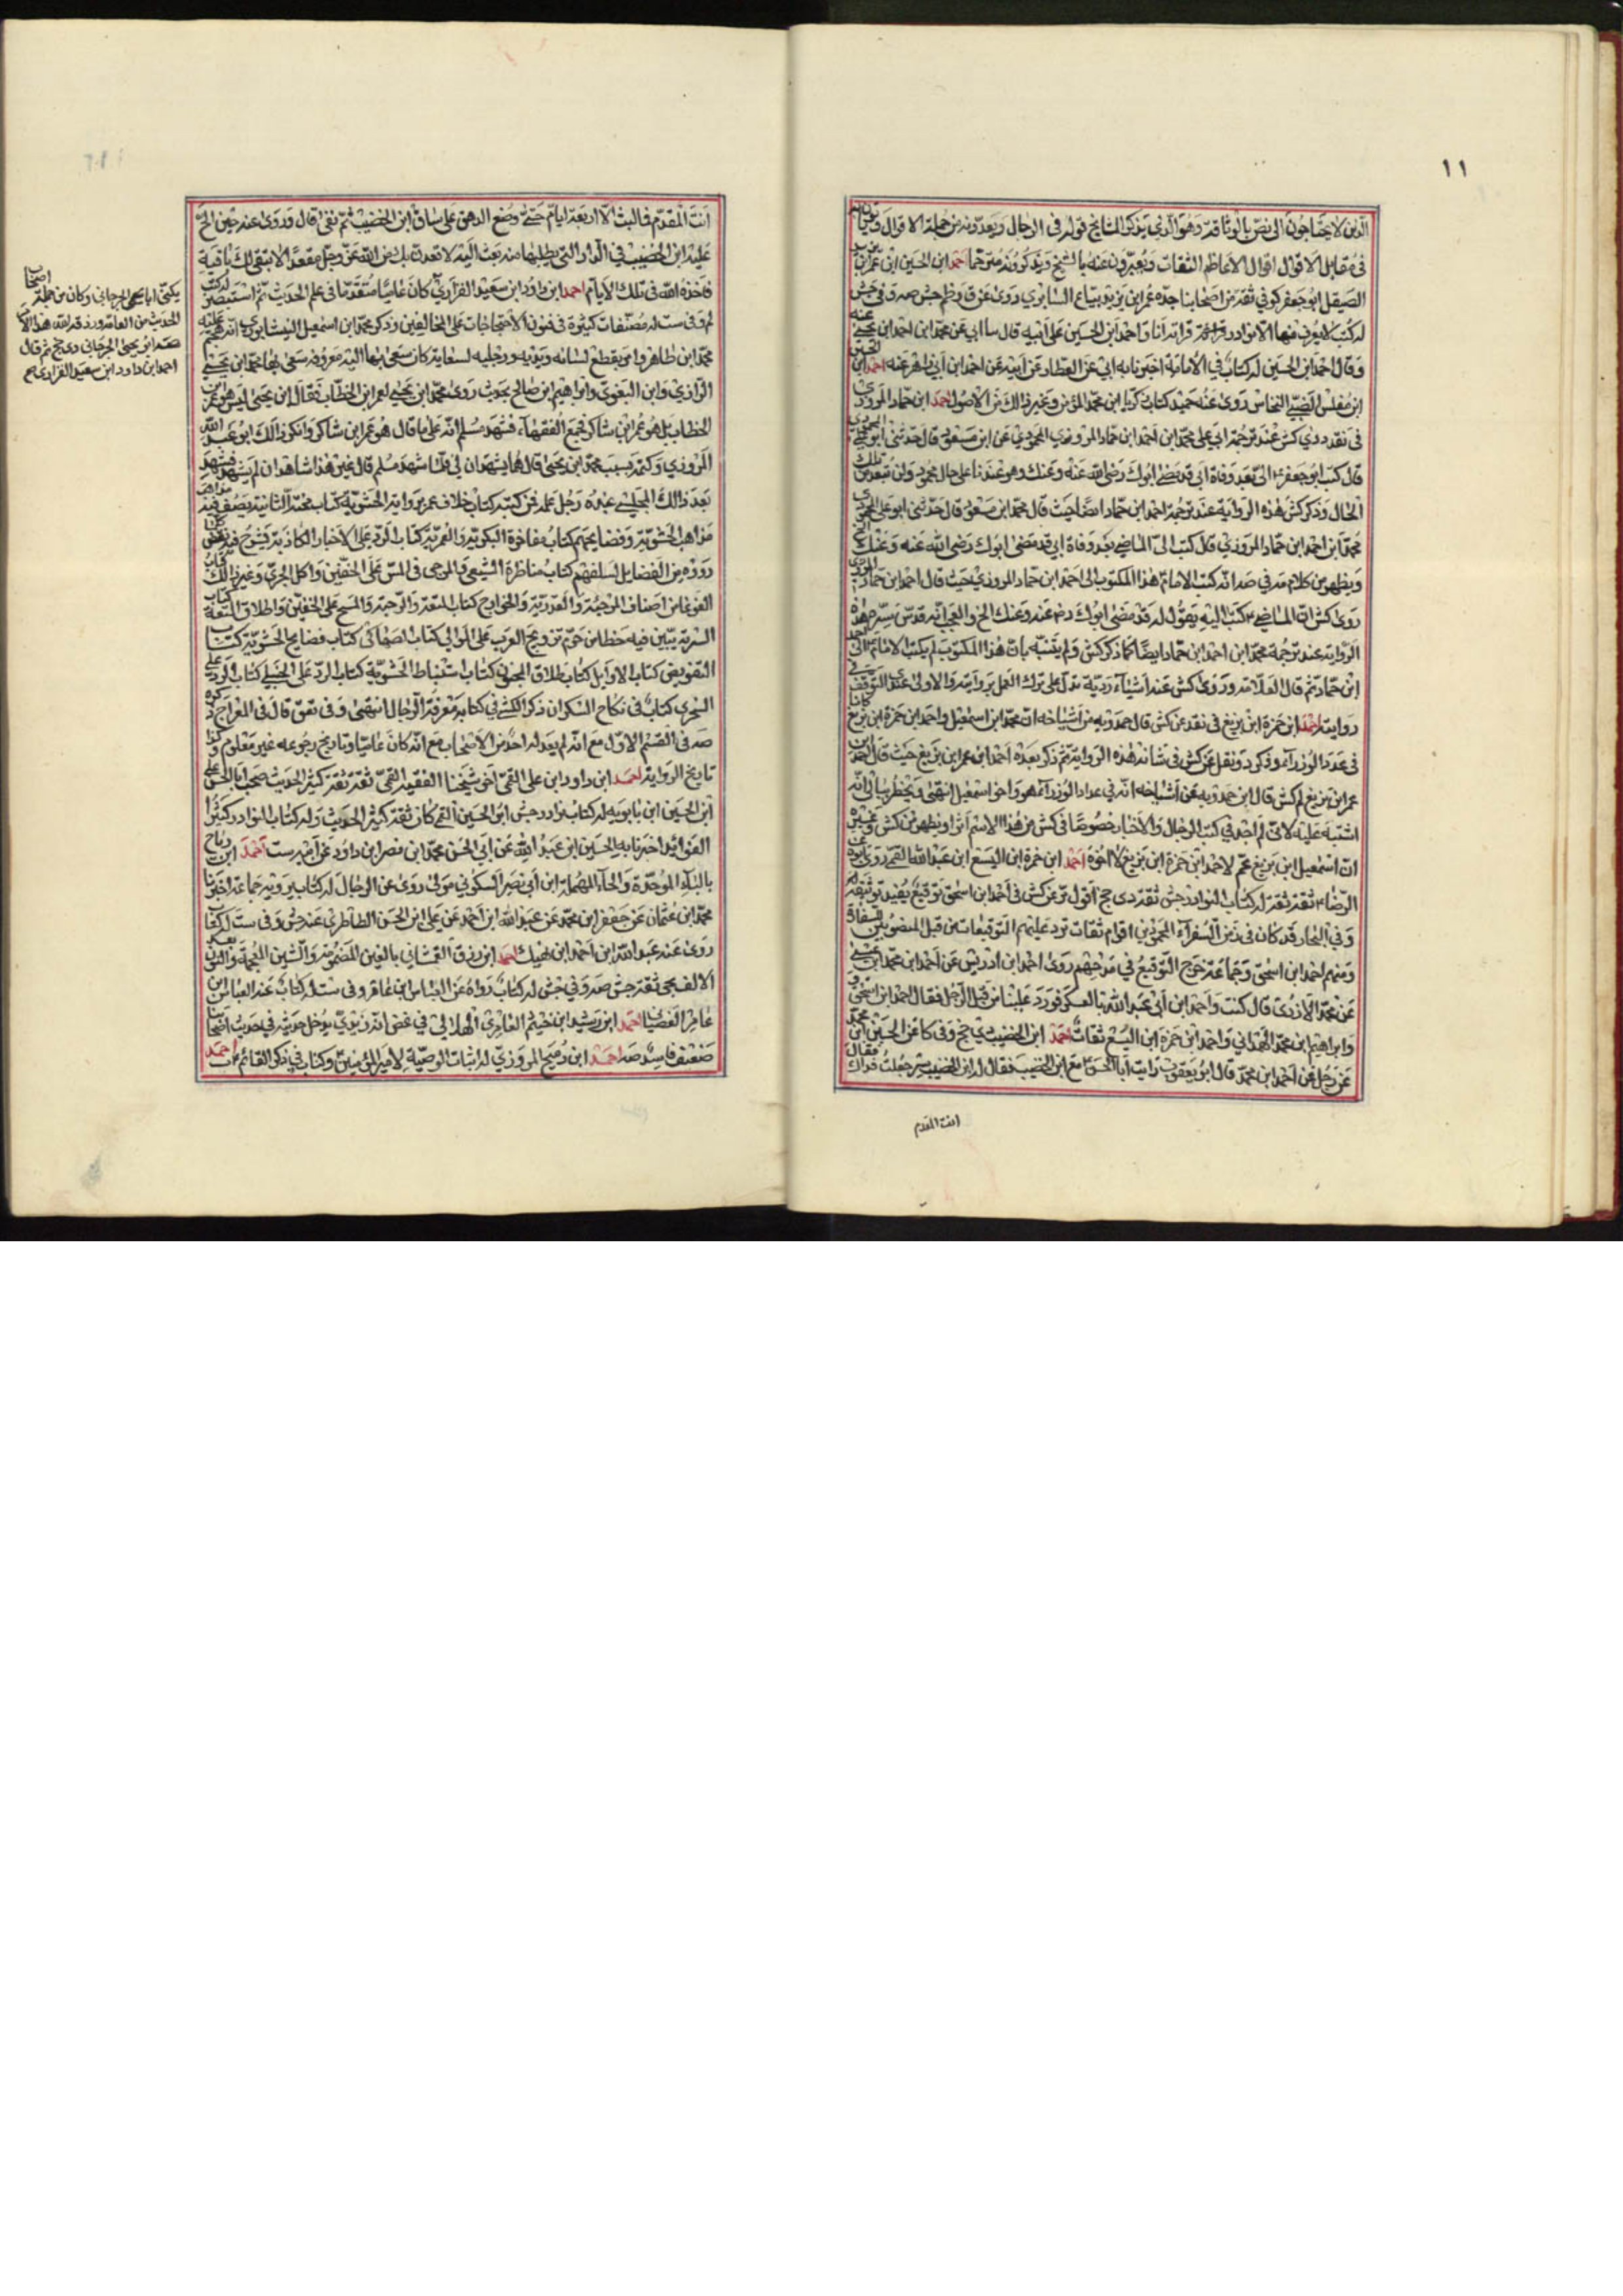 ١١
الذين لا يحتاجون الى نص بالوثاقة وهو الذي يذكر المشايخ قوله في الرجال ويعدونه من جملة الاقوال وياتون به
في مقابل الاقوال اقوال الاعاظم الثقات ويعبرون عنه بالشيخ ويذكرونه مترحما احمد ابن الحسين ابن عمر ابن يزيد
الصيقل ابو جعفر كوفي ثقة من اصحابنا جده عمر ابن يزيد بياع السابري روى عن ق وظم جش صه وفي جش
له كتب لا يعرف منها الا النوادر قراته انا واحمد ابن الحسين على ابيه قال سا ابي عن محمد ابن احمد ابن يحيى عنه
وقال احمد ابن الحسين له كتاب في الامامة اخبرنا به ابي عن العطار عن ابيه عن احمد ابن ابي زاهر عنه احمد ابن الحسين
ابن مفلس الضبي النحاس روى عنه حميد كتاب زكريا ابن محمد المؤمن وغير ذالك من الاصول احمد ابن حماد المروزي
في نقد دي كش عند ترجمة ابي علي محمد ابن احمد ابن حماد المروزي المحمودي عن ابن مسعود قال حدثني ابو علي المحمودي
قال كتب ابو جعفر الي بعد وفاة ابي قد مضى ابوك رضي الله عنه وعنك وهو عندنا على حال محمودة ولن تبعد من تلك
الحال وذكر كش هذه الرواية عند ترجمة احمد ابن حماد ايضا حيث قال محمد ابن مسعود قال حدثني ابو علي المحمودي
محمد ابن احمد ابن حماد المروزي قال كتب الي الماضي بعد وفاة ابي قد مضى ابوك رضي الله عنه وعنك الخ
ويظهر من كلام مه في صه انه كتب الامام هذا المكتوب الى احمد ابن حماد المروزي حيث قال احمد ابن حماد المروزي
روى كش ان الماضي كتب اليه يقول له قد مضى ابوك رضه عنه وعنك الخ والعجب انه قدس سره هذه
الرواية عند ترجمة محمد ابن احمد ابن حماد ايضا كما ذكر كش ولم يتنبه بان هذا المكتوب لم يكتب الامام الى احمد
ابن حماد ثم قال العلامة وروى كش عنه اشياء ردية تدل على ترك العمل بروايته والاولى عندي التوقف في
روايته احمد ابن حمزة ابن بزيع في نقد عن كش قال حمدويه من اشياخه ان محمد ابن اسمعيل واحمد ابن حمزة ابن بزيع كانا
في عدد الوزراء وذكر د ونقل عن كش في شانه هذه الرواية ثم ذكر بعده احمد ابن عمر ابن بزيع حيث قال احمد ابن
عمر ابن بزيع لم كش قال ابن حمدويه عن اشياخه انه في عداد الوزراء هو واخو اسمعيل انتهى ويخطر ببالي انه
اشتبه عليه لاني لم اجد في كتب الرجال والاخبار خصوصا في كش من هذا الاسم اثرا ويظهر من كش وغيره
ان اسمعيل ابن بزيع عم لاحمد ابن حمزة ابن بزيع لا اخوه احمد ابن حمزة ابن اليسع ابن عبد الله القمي روى ابوه عن
الرضا ثقة ثقة له كتاب النوادر جش ثقة دي جخ اقول مر عن كش في احمد ابن اسحق توقيع يفيد توثيقه
وفي البحار قد كان في زمن السفراء المحمودين اقوام ثقات ترد عليهم التوقيعات من قبل المنصوبين للسفارة
ومنهم احمد ابن اسحق وجماعة خرج التوقيع في مدحهم روى احمد ابن ادريس عن احمد ابن محمد ابن عيسى
عن محمد الازدي قال كنت واحمد ابن ابي عبد الله بالعسكر فورد علينا من قبل الرجل فقال احمد ابن اسحق و
وابراهيم ابن محمد الهمداني واحمد ابن حمزة ابن اليسع ثقات احمد ابن الخضيب دي جخ وفي كا عن الحسين ابن محمد
عن رجل عن احمد ابن محمد قال ابو يعقوب رايت ابا الحسن مع ابن الخضيب فقال له ابن الخضيب سر جعلت فداك فقال
انت المقدم
انت المقدم فما لبث الا اربعة ايام حتى وضع الدهق على ساق ابن الخضيب ثم نعى قال وروى عنه حين الح
عليه ابن الخضيب في الدار التي يطلبها منه بعث اليه لاقعدن بك من الله عز وجل مقعدا لا تبقى لك باقية
فاخذه الله في تلك الايام احمد ابن داود ابن سعيد الفزاري كان عاميا متقدما في علم الحديث ثم استبصر له كتب
لم وفي ست له مصنفات كثيرة في فنون الاحتجاجات على المخالفين وذكر محمد ابن اسمعيل النيشابوري انه هجم عليه
محمد ابن طاهر وامر بقطع لسانه ويديه ورجليه لسعاية كان سعى بها اليه معروفه سعى بها محمد ابن يحيى
الرازي وابن البغوي وابراهيم ابن صالح بحديث روى محمد ابن يحيى لعمر ابن الخطاب فقال ابن يحيى ليس هو عمر ابن
الخطاب بل هو عمر ابن شاكر فجمع الفقهاء فشهد مسلم انه على ما قال هو عمر ابن شاكر وانكر ذالك ابو عبد الله
المروزي وكتمه بسبب محمد ابن يحيى قال هما يشهدان لي فلما شهد مسلم قال غير هذا شاهد ان لم يشهد فشهد
بعد ذالك المجلس عنده رجل علمه فمن كتبه كتاب خلاف عمر برواية الحشوية كتاب محنة النائية يصف فيه مذاهب
مذاهب الحشوية وفضايحهم كتاب مفاخرة البكرية والعمرية كتاب الرد على الاخبار الكاذبة يشرح فيه نقض كل ما
رووه من الفضايل لسلفهم كتاب مناظرة الشيعي والمرجي في المسح على الخفين واكل الجري وغير ذالك كتاب
الغوغا من اصناف المرجئة والقدرية والخوارج كتاب المتعة والرجعة والمسح على الخفين واطلاق المتعة كتاب
السرية يبين فيه خطا من حرم تزويج العرب على الموالي كتاب الصهاكي كتاب فضايح الحشوية كتاب
التفويض كتاب الاوايل كتاب طلاق المجنون كتاب استنباط الحشوية كتاب الرد على الحنبلي كتاب الرد على
السجزي كتاب في نكاح السكران ذكر الكشي في كتابه معرفة الرجال انتهى وفي تعق قال في المعراج ذكره
صه في القسم الاول مع انه لم يعدله احد من الاصحاب مع انه كان عاميا وتاريخ رجوعه غير معلوم وكذا
تاريخ الرواية احمد ابن داود ابن علي القمي اخو شيخنا الفقيه القمي ثقة ثقة كثير الحديث صحب ابا الحسن علي
ابن الحسين ابن بابويه له كتاب نوادر جش ابن الحسين القمي كان ثقة كثير الحديث وله كتاب النوادر كثير
الفوائد اخبرنا به الحسين ابن عبد الله عن ابي الحسن محمد ابن احمد ابن داود عن ابيه ست احمد ابن رباح
بالباء الموحدة والحاء المهملة ابن ابي نصر السكوني مولى روى عن الرجال له كتاب يرويه جماعة اخبرنا
محمد ابن عثمان عن جعفر ابن محمد عن عبد الله ابن احمد عن علي ابن الحسن الطاطري عنه جش وفي ست له كتاب
روى عنه عبد الله ابن احمد ابن نهيك احمد ابن رزق الغمشاني بالغين المضمومة والشين المعجمة والنون بعد
الالف بجلي ثقة جش صه وفي جش له كتاب رواه عن العباس ابن عامر وفي ست له كتاب عنه العباس ابن
عامر القصباني احمد ابن رشيد ابن خيثم العامري الهلالي في غض انه زيدي يدخل حديثه في حديث اصحابنا
ضعيف فاسد صه احمد ابن رميح المروزي له اثبات الوصية لامير المؤمنين وكتاب في ذكر القائم ب احمد
يكنى ابا يحيى الجرجاني وكان من جملة اصحاب
الحديث من العامة ورزقه الله هذا الامر
صه ابو يحيى الجرجاني دي جخ ثم قال
احمد ابن داود ابن سعيد الفزاري صح